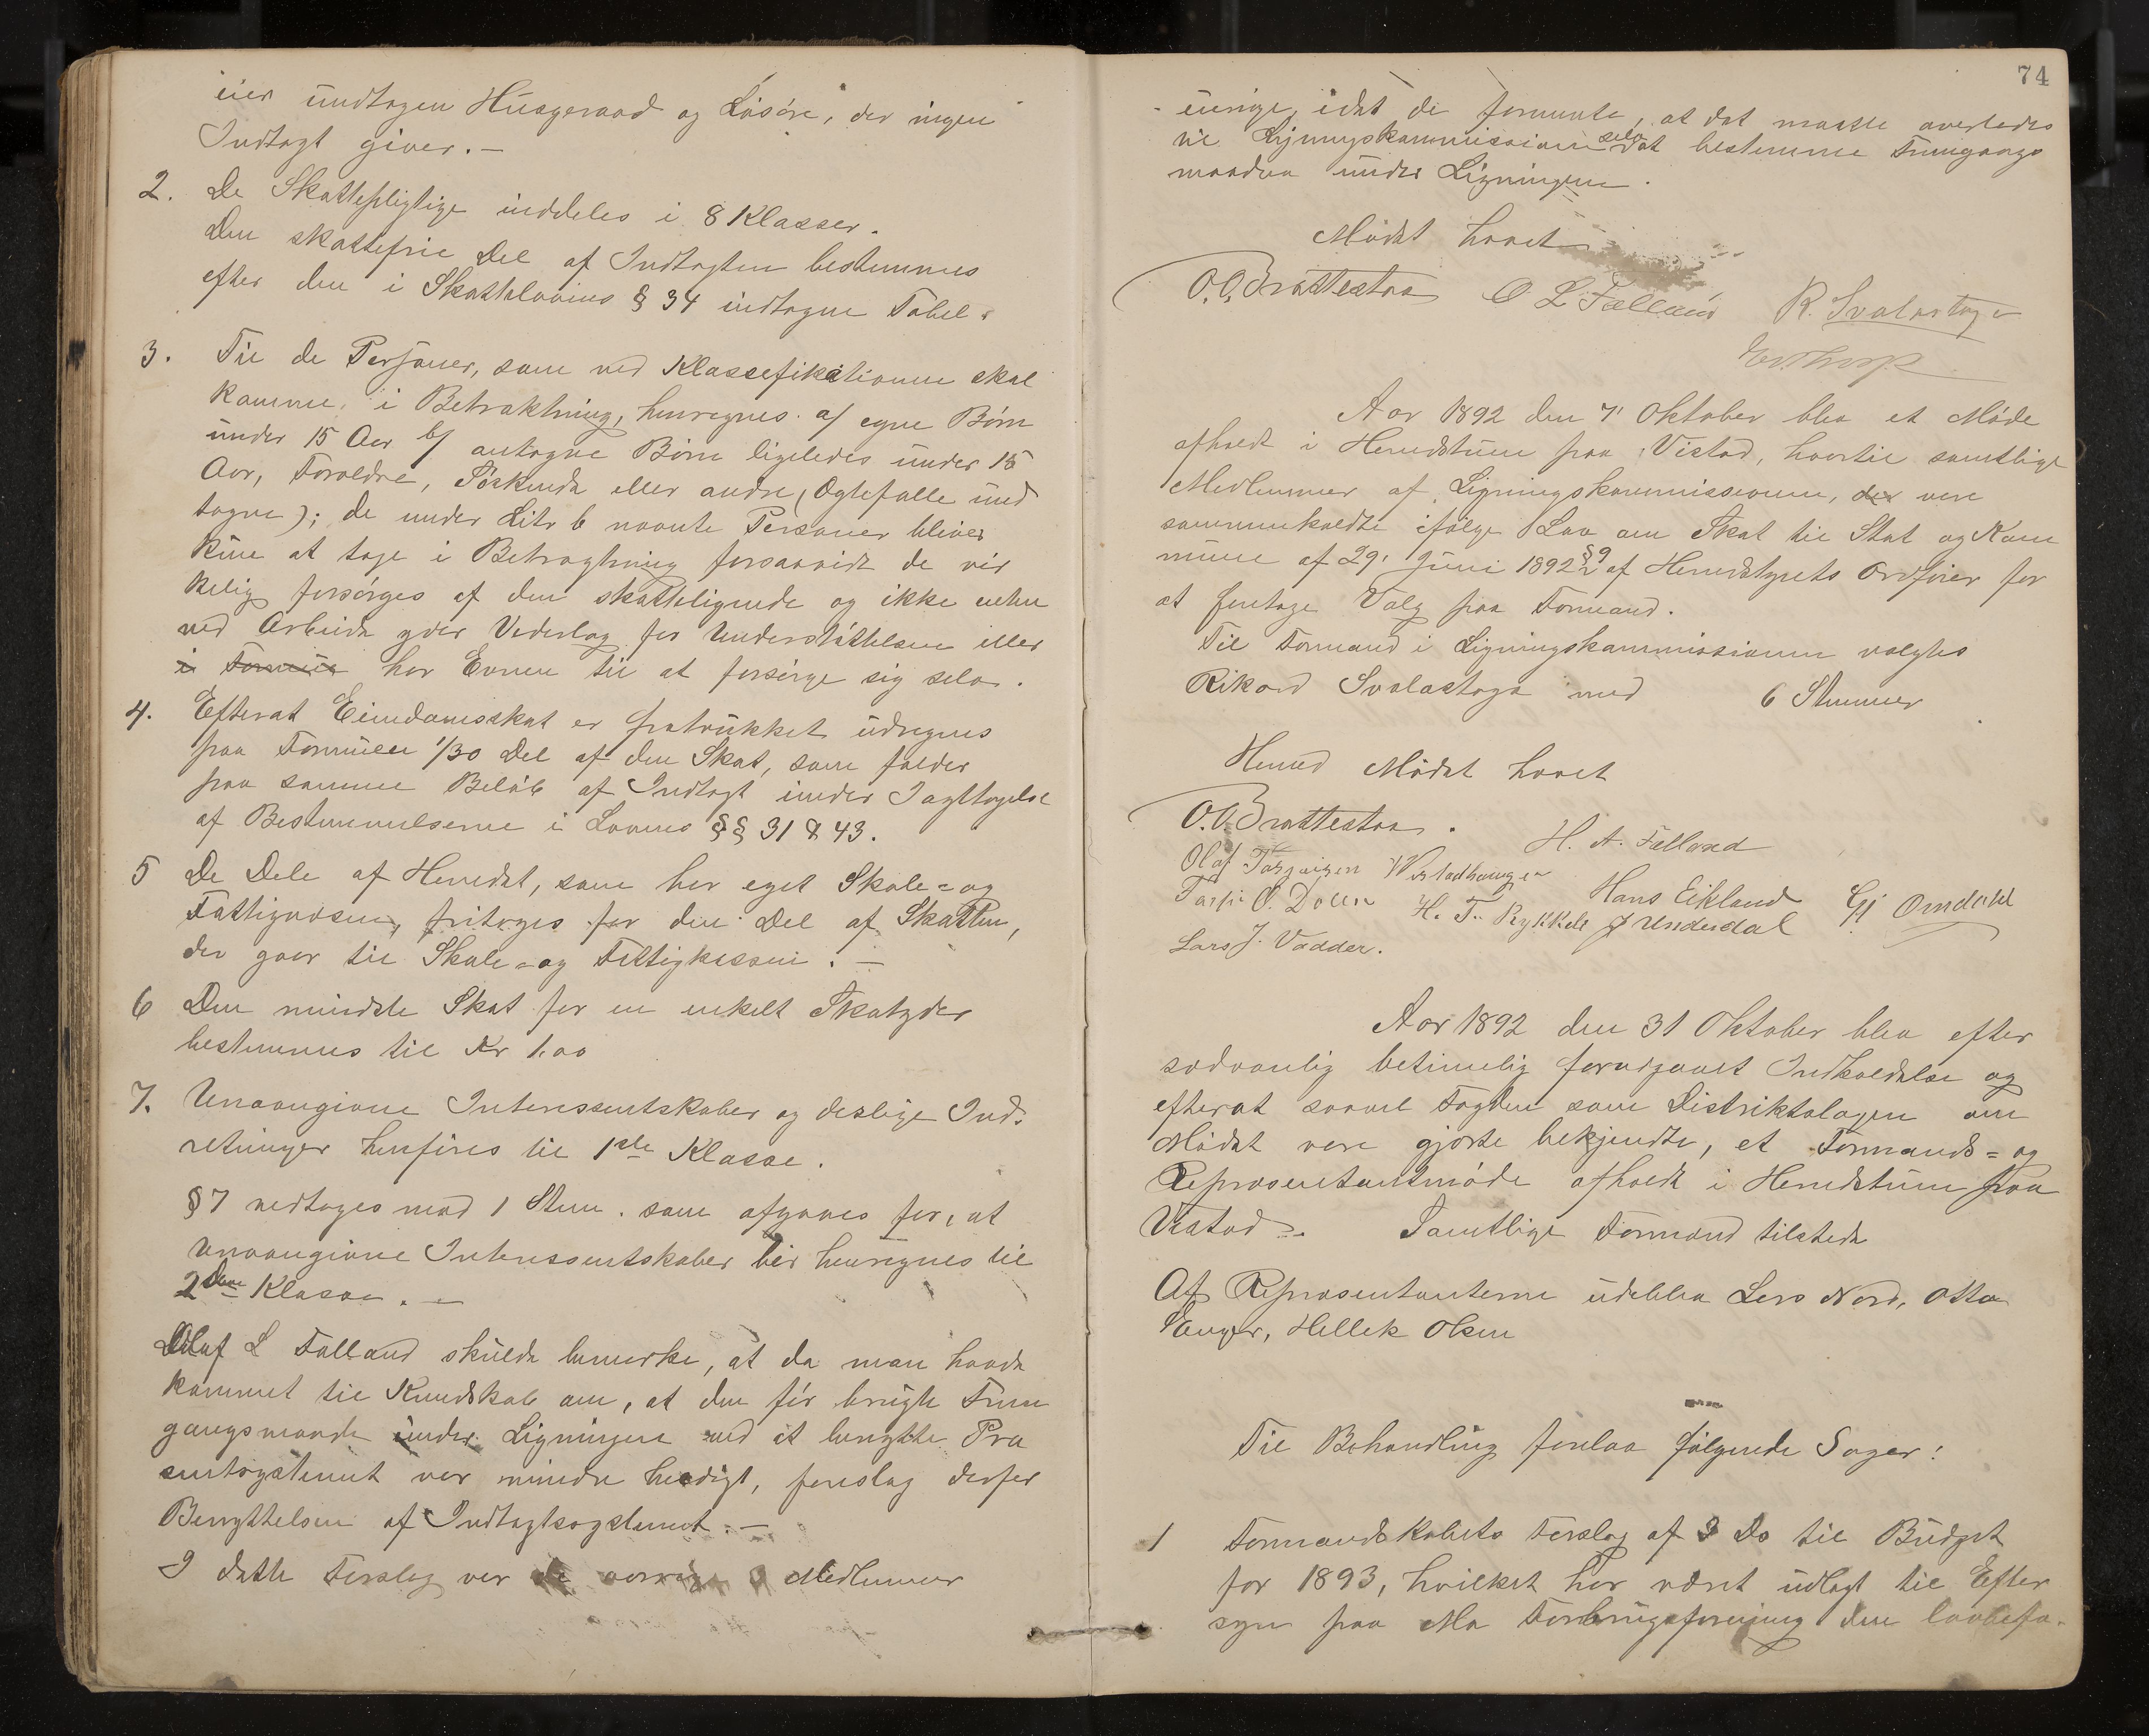 eier undtagen Husgeraad og Løsøre, der ingen
Indtægt giver. —
2. De Skattepligtige inddeles i 8 Klasser.
Den skattefrie Del af Indtægten bestemmes
efter den i Skattelovens § 34 indtagne Tabel.
3. Til de Personer, som ved Klassefikationen skal
komme i Betraktning, henregnes a/ egne Børn
under 15 Aar b/ antagne Børn ligeledes under 15
Aar, Forældre, Søskende eller andre (Ægtefælle und
tagne); de under Litr b nævnte Personer bliver
kun at tage i Betragtning forsaavidt de vir
kelig forsørges af den skatteligende og ikke enten
ved Arbeide yder Vederlag for Understøttelsen eller
i Formue har Evnen til at forsørge sig selv.
4. Efterat Eiendomsskat er fratrukket udregnes
paa Formuen 1/30 Del af den Skat, som falder
paa samme Beløb af Indtægt under Iagttagelse
af Bestemmelserne i Lovens §§ 31 & 43.
5 De Dele af Herredet, som har eget Skole= og
Fattigvæsen, fritages for den Del af Skatten,
der gaar til Skole= og Fattigkassen. —
6 Den mindste Skat for en enkelt Skatyder
bestemmes til Kr 1.00
7. Uvaangivne Interessentskaber og deslige Ind=
retninger henføres til 1ste Klasse.
§7 vedtoges mod 1 Stem. som afgaves for, at
Uvaangivne Interessentskaber bør henregnes til
2den Klasse. —
Oluf L Falland skulde bemerke, at da man havde
kommet til Kundskab om, at den før brugte Frem
gangsmaade under Ligningen ved at benytte Pro
sentsystemet var mindre heldigt, foreslog derfor
Benyttelsen af Indtægtssystemet. —
I dette Forslag var de Medlemmer
74
uenige, idet de formente, at det maatte overlades
til Ligningskommissionen selv at bestemme Fremgangs
maaden under Ligningen.
Mødet hævet
O. O. Brattestaa O L Falland R. Svalastoga
Aar 1892 den 7' Oktober blev et Møde
afholdt i Herredstuen paa Vistad, hvortil samtlige
Medlemmer af Ligningskommissionen, der vare
sammenkaldte ifølge Lov om Skat til Stat og Kom
mune af 29' Juni 1892 § 9 af Herredstyrets Ordfører for
at foretage Valg paa Formand.
Til Formand i Ligningskommissionen valgtes
Rikard Svalastoga med 6 Stemmer
Herved Mødet hævet
O. O. Brattestaa.
H. A. Falland
Olaf Torgeirsen Wistadhaugen
Hans Eikland
Tarje O. Dalen H. T. Rykkeli J Underdal Gj Omdahl
Lars J. Vadder.
Aar 1892 den 31 Oktober blev efter
sædvanlig betimelig forudgaaet Indkaldelse og
efterat saavel Fogden som Distriktslægen om
Mødet vare gjorte bekjendte, et Formands= og
Repræsentantmøde afholdt i Herredstuen paa
Vistad. Samtlige Formænd tilstede
Af Repræsentanterne udeblev Lars Nord, Otto
Hellek Olsen
Til Behandling forelaa følgende Sager:
1 Formandskabets Forslag af 3 Ds til Budget
for 1893, hvilket har været udlagt til Efter
syn paa Mo Forbrugsforening den lovbefa=